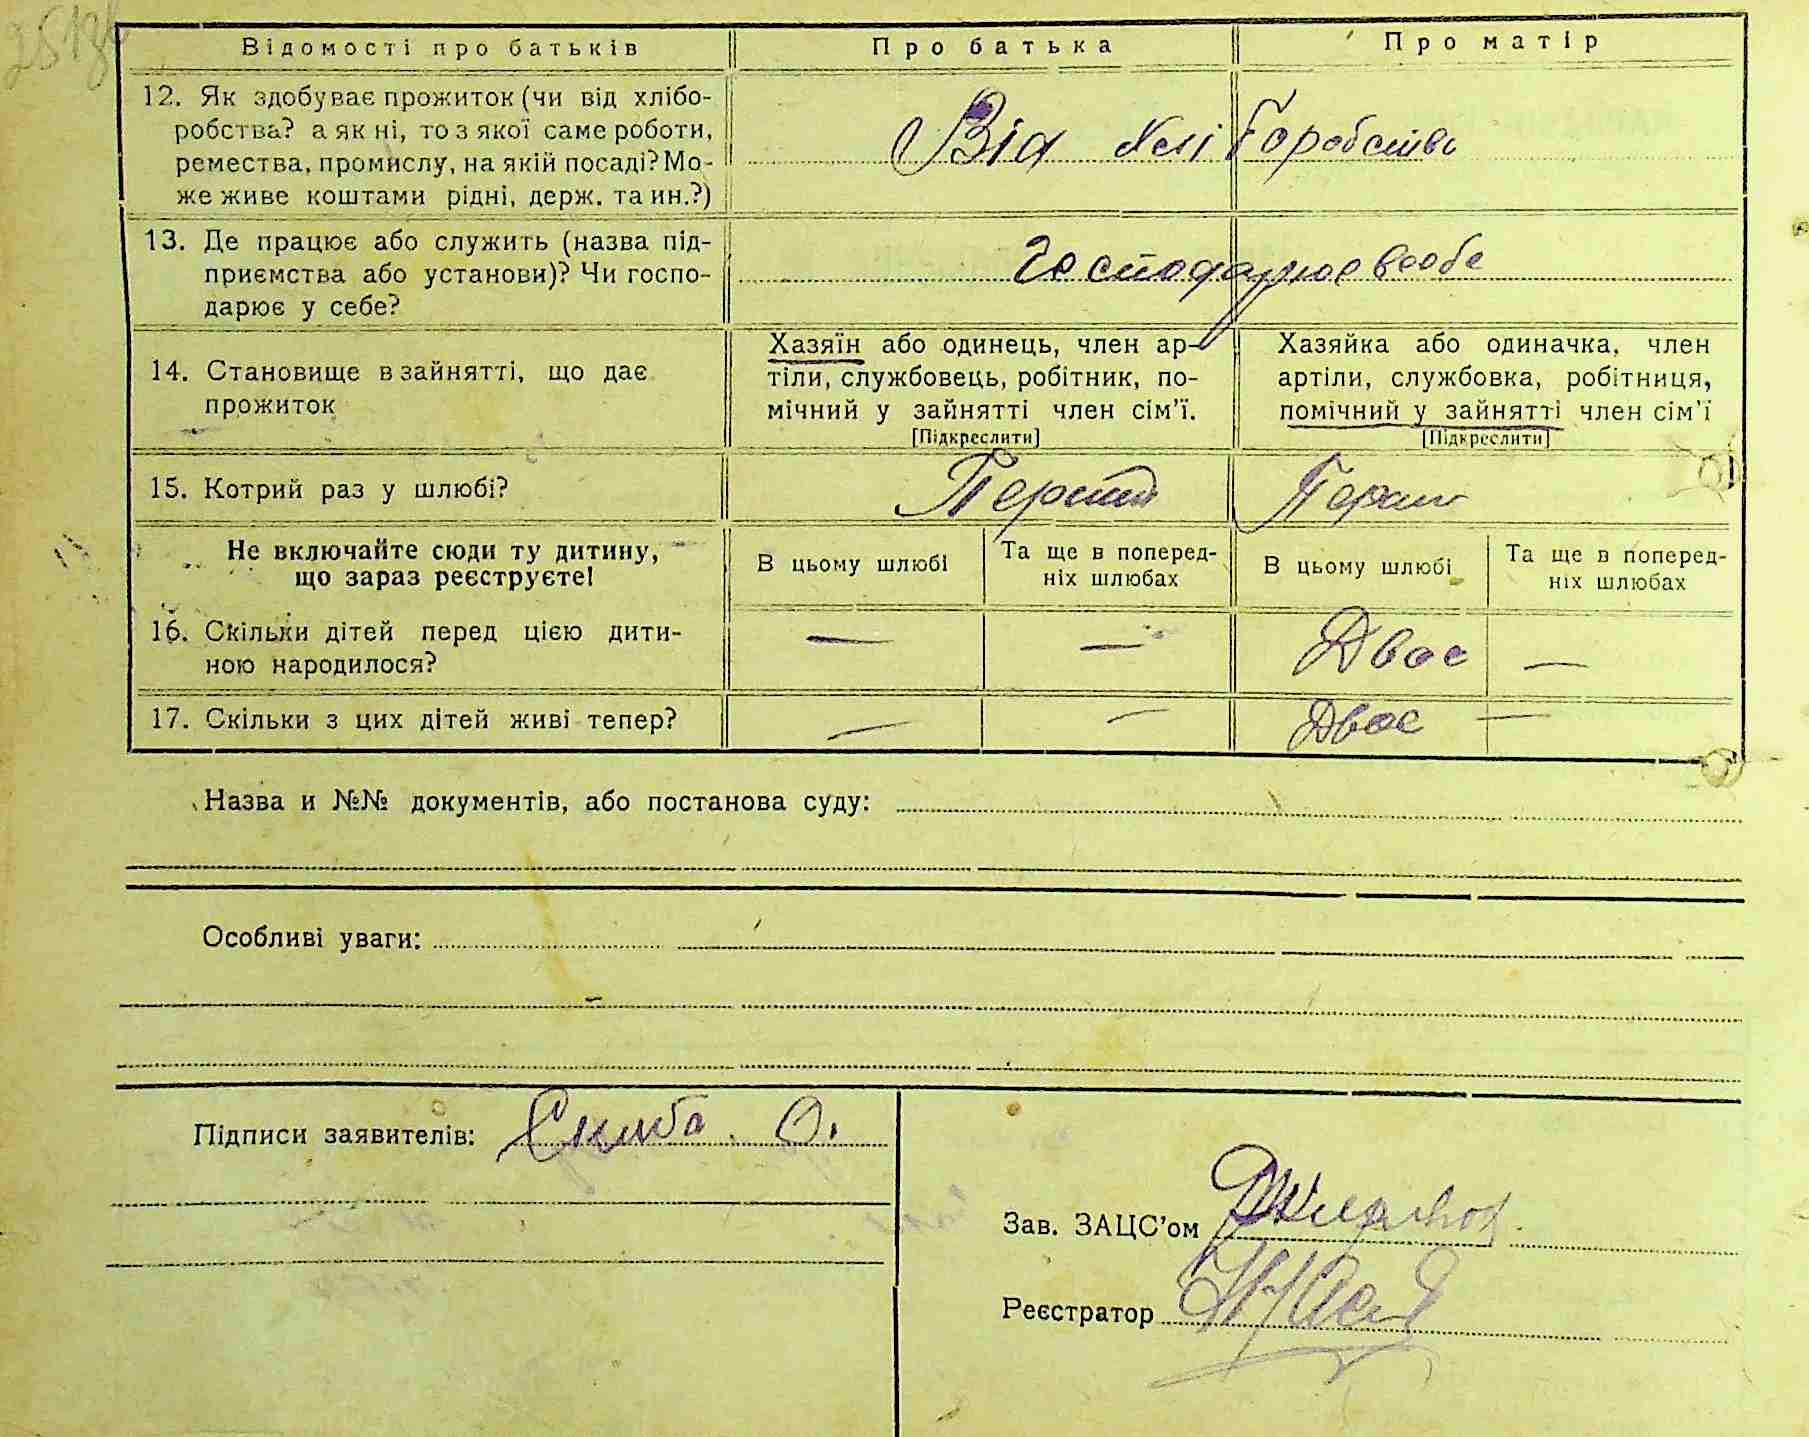 Відомості про батьків Про батька Про матір
12. Як здобуває прожиток (чи від хлібо-
робства? а як ні, то з якої саме роботи,
ремества, промислу, на якій посаді? Мо-
же живе коштами рідні, держ. та ин.?)
Від хліборобства
13. Де працює або служить (назва під-
приємства або установи)? Чи госпо-
дарює у себе?
Господарює в себе
14. Становище в зайнятті, що дає
прожиток
Хазяїн або одинець, член ар-
тіли, службовець, робітник, по-
мічний у зайнятті член сім'ї.
[Підкреслити]
Хазяйка або одиначка, член
артіли, службовка, робітниця,
помічний у зайнятті член сім'ї
[Підкреслити]
15. Котрий раз у шлюбі? Перший
Не включайте сюди ту дитину,
що зараз реєструєте!
В цьому шлюбі
Та ще в поперед-
ніх шлюбах
В цьому шлюбі
Та ще в поперед-
ніх шлюбах
16. Скільки дітей перед цією дити-
ною народилося?
— — Двоє —
17. Скільки з цих дітей живі тепер? — — Двоє —
Назва и №№ документів, або постанова суду:
Особливі уваги:
Підписи заявителів: О.
Зав. ЗАЦС'ом
Реєстратор